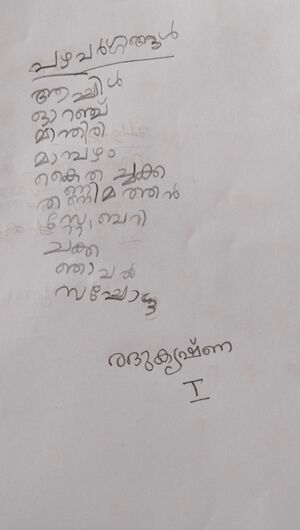 പഴവർഗങ്ങൾ
ആപ്പിൾ
ഓറഞ്ച്
മുന്തിരി
മാമ്പഴം
കൈതച്ചക്ക
തണ്ണിമത്തൻ
സ്ട്രോബറി
ചക്ക
ഞാവൽ
സപ്പോട്ട
യദുകൃഷ്ണ
I